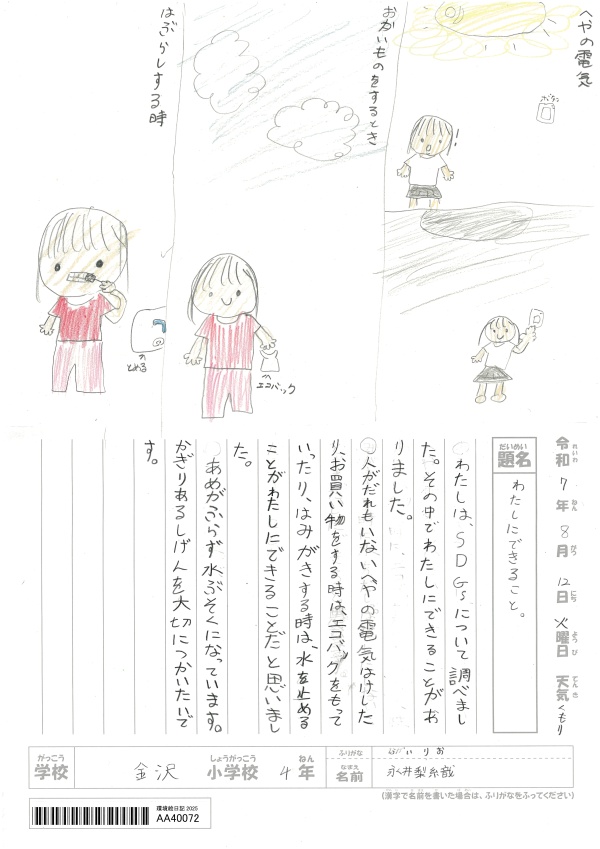 へやの電気
ボタン
おかいものをするとき
エコバック
はぶらしする時
とめる
令和7年8月12日火曜日 天気くもり
れいわ ねん がつ にち ようび てんき
だいめい
題名
わたしにできること。
わたしは、SDGsについて調べまし
た。その中でわたしにできることがあ
りました。
人がだれもいないへやの電気はけした
り、お買い物をする時は、エコバックをもって
いったり、はみがきする時は、水を止める
ことがわたしにできることだと思いまし
た。
あめがふらず水ぶそくになっています。
かぎりあるしげんを大切につかいたいで
す。
がっこう
学校
しょうがっこう ねん
金沢 小学校 4年
ふりがな
なまえ
名前
(漢字で名前を書いた場合は、ふりがなをふってください)
環境絵日記2025
AA40072